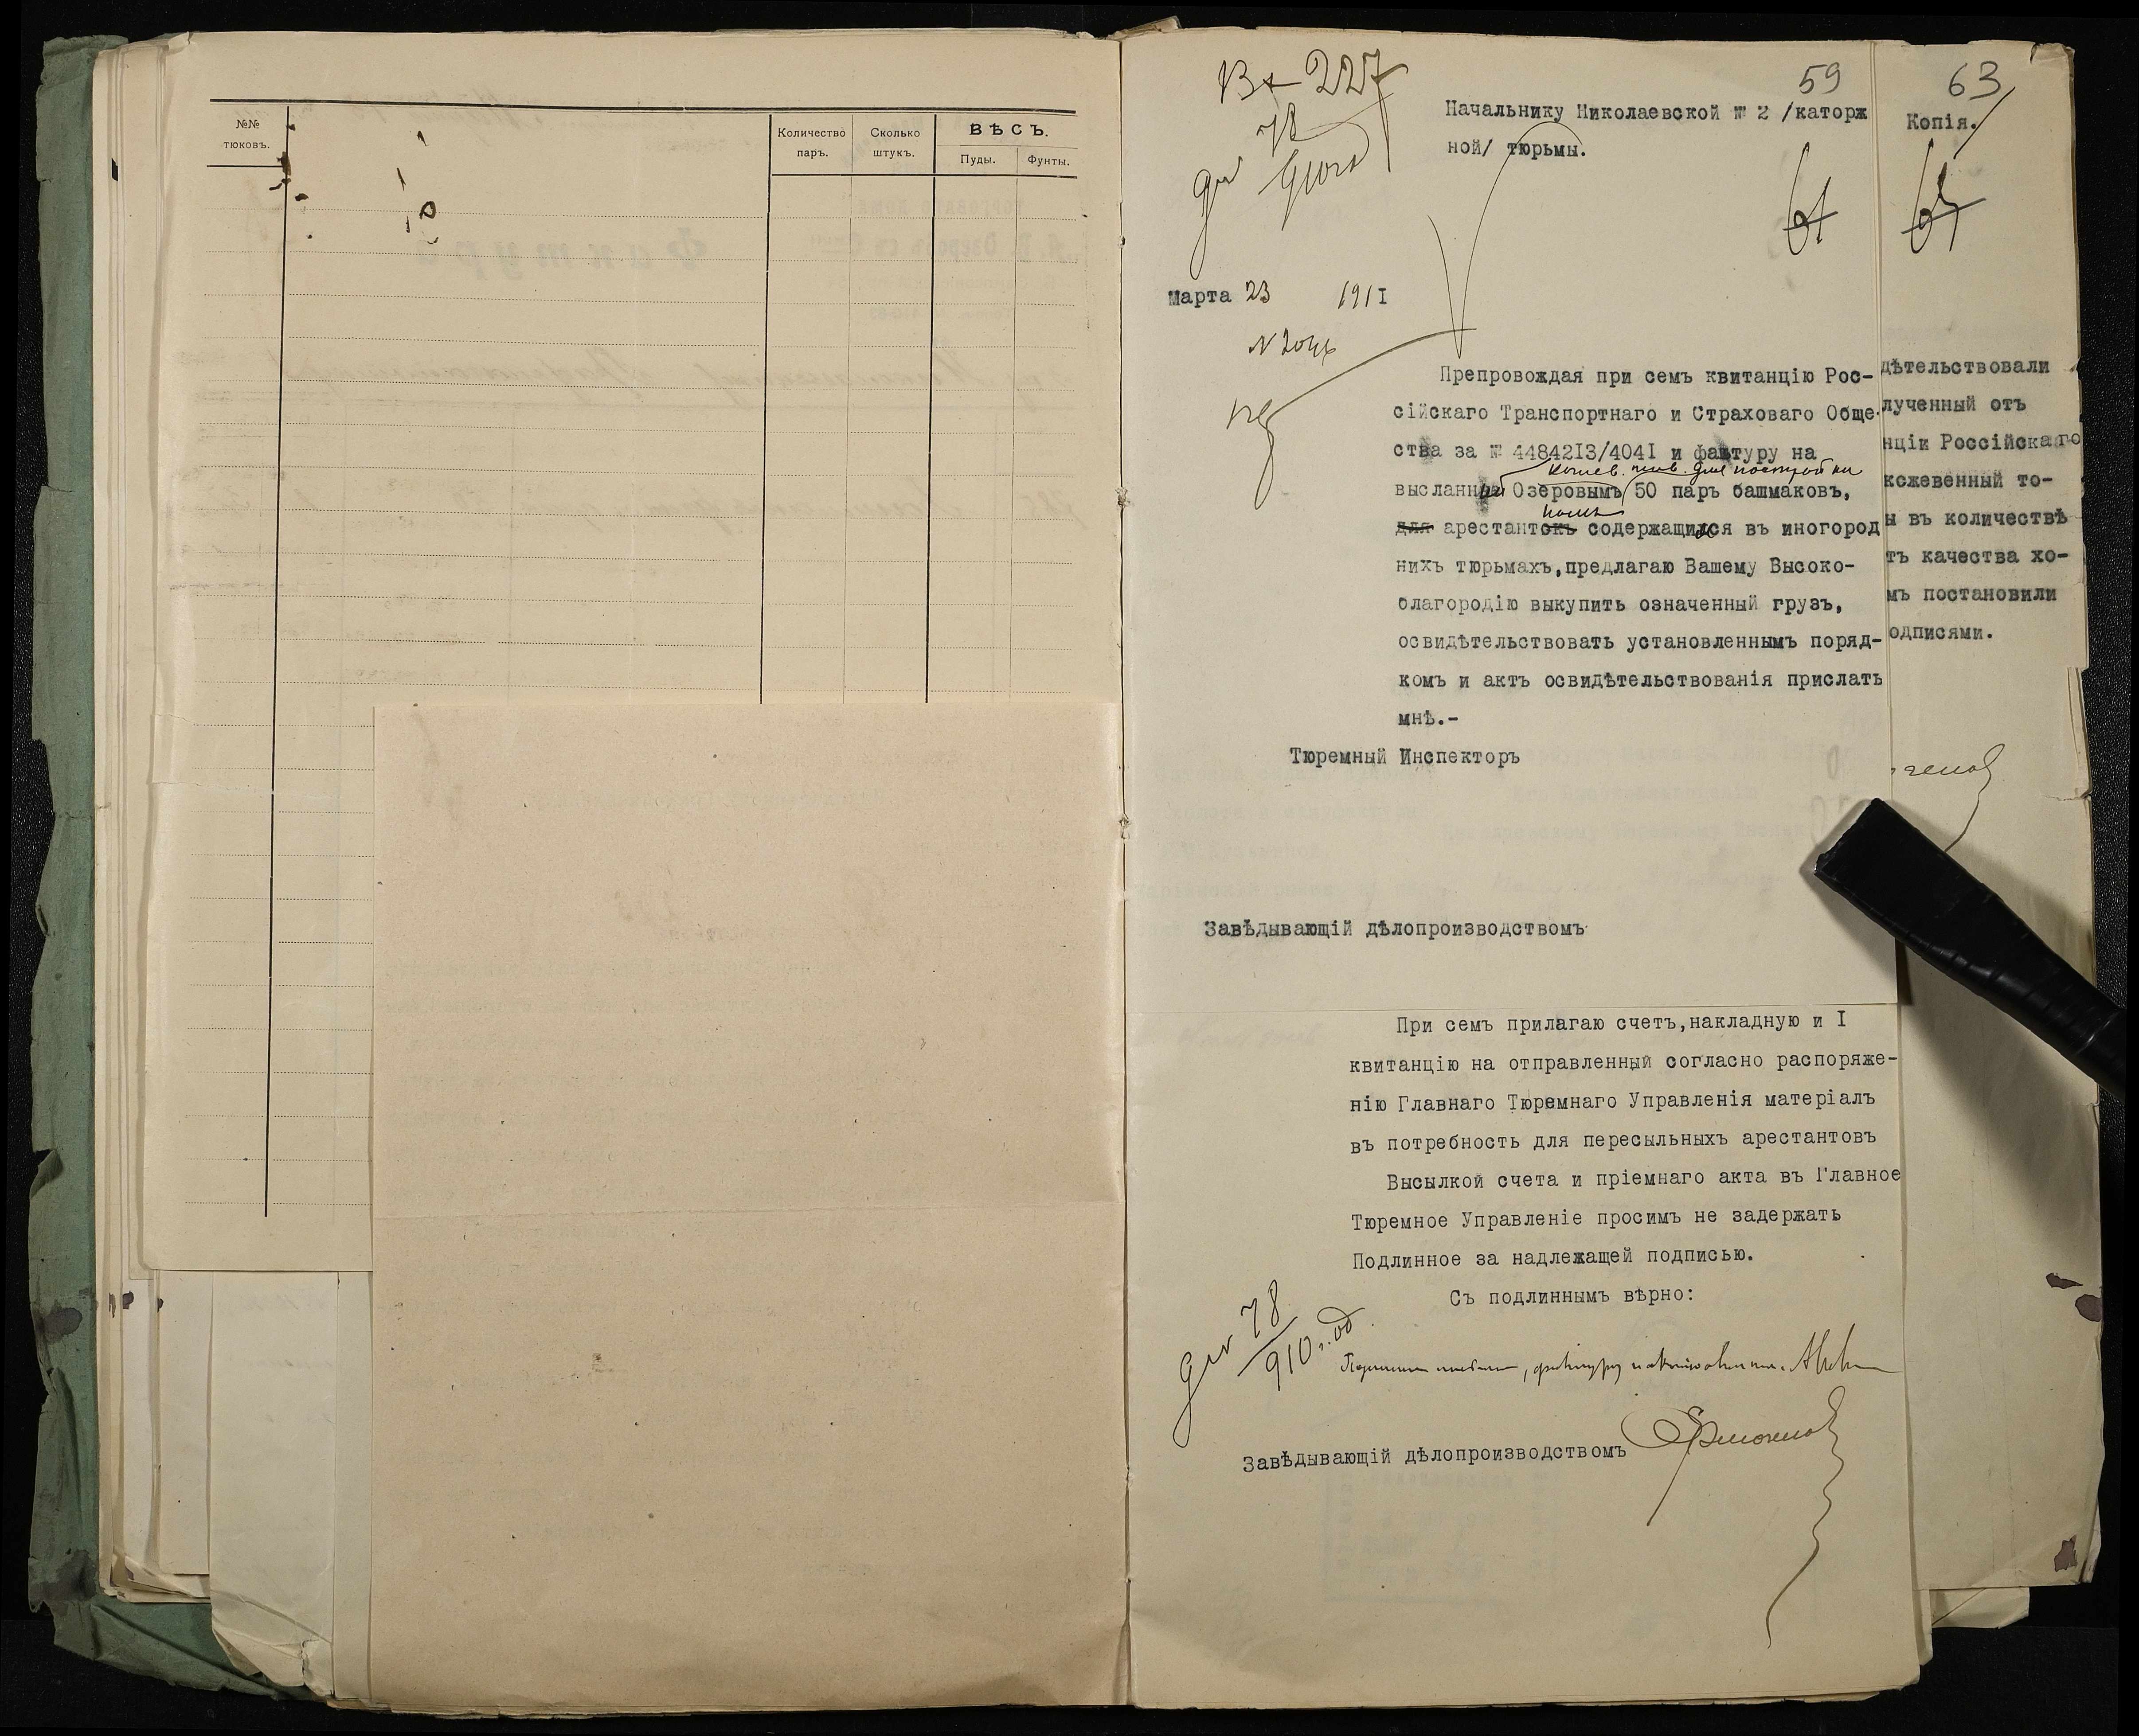 №№
тюковъ.
Количество
паръ.
Сколько
штукъ.
ВѢСЪ.
Пуды.
Фунты.
Вх 227
59
Начальнику Николаевской № 2 /каторж
ной/ тюрьмы.
78
61
марта 23 1911
N 2046
Препровождая при семъ квитанцію Рос-
сійскаго Транспортнаго и Страховаго Обще-
ства за № 4484213/4041 и фактуру на
для постройки
высланныя Озеровымъ 50 паръ башмаковъ,
для арестантокъ содержащихся въ иногород
нихъ тюрьмахъ,предлагаю Вашему Высоко-
благородію выкупить означенный грузъ,
освидѣтельствовать установленнымъ поряд-
комъ и актъ освидѣтельствованія прислать
мнѣ.-
Тюремный Инспекторъ
Завѣдывающій дѣлопроизводствомъ
При семъ прилагаю счетъ,накладную и I
квитанцію на отправленный согласно распоряже-
нію Главнаго Тюремнаго Управленія матеріалъ
въ потребность для пересыльныхъ арестантовъ
Высылкой счета и пріемнаго акта въ Главное
Тюремное Управленіе просимъ не задержать
Подлинное за надлежащей подписью.
Съ подлиннымъ вѣрно:
78
910
Завѣдывающій дѣлопроизводствомъ
63
Копія.
дѣтельствовали
лученный отъ
нціи Россійскаго
кожевенный то-
ы въ количествѣ
тъ качества хо-
мъ постановили
одписями.